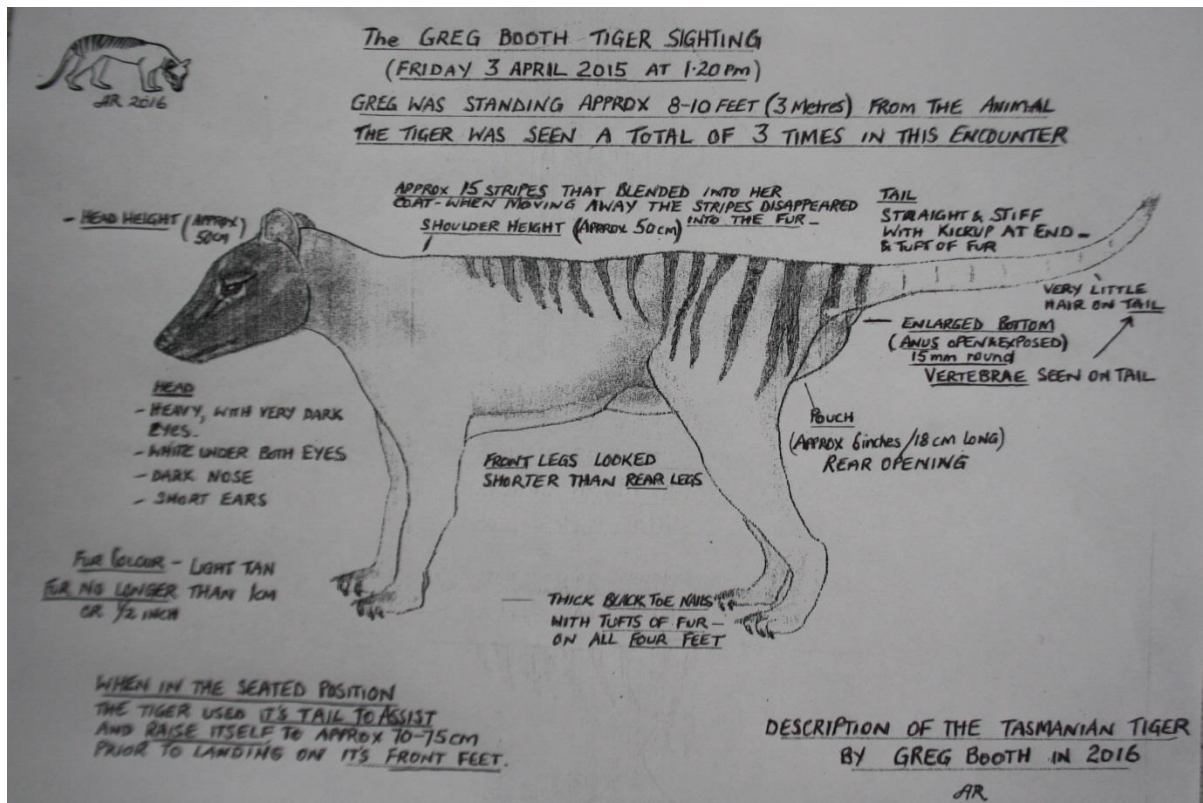 The GREG BOOTH TIGER SIGHTING
(FRIDAY 3 APRIL 2015 AT 1·20 PM)
AR 2016
GREG WAS STANDING APPROX 8-10 FEET (3 Metres) FROM THE ANIMAL
THE TIGER WAS SEEN A TOTAL OF 3 TIMES IN THIS ENCOUNTER
- HEAD HEIGHT (APPROX
50cm)
APPROX 15 STRIPES THAT BLENDED INTO HER
COAT-WHEN MOVING AWAY THE STRIPES DISAPPEARED
INTO THE FUR -
SHOULDER HEIGHT (APPROX 50cm)
TAIL
STRAIGHT & STIFF
WITH KICKUP AT END -
& TUFT OF FUR
VERY LITTLE
HAIR ON TAIL
- ENLARGED BOTTOM
(ANUS OPEN & EXPOSED)
15mm round
VERTEBRAE SEEN ON TAIL
POUCH
(APPROX 6inches/18cm LONG)
REAR OPENING
HEAD
- HEAVY, WITH VERY DARK
EYES.
- WHITE UNDER BOTH EYES
- DARK NOSE
- SHORT EARS
FRONT LEGS LOOKED
SHORTER THAN REAR LEGS
FUR COLOUR - LIGHT TAN
FUR NO LONGER THAN 1cm
OR 1/2 INCH
- THICK BLACK TOE NAILS
WITH TUFTS OF FUR -
ON ALL FOUR FEET
WHEN IN THE SEATED POSITION
THE TIGER USED IT'S TAIL TO ASSIST
AND RAISE ITSELF TO APPROX 70-75cm
PRIOR TO LANDING ON IT'S FRONT FEET.
DESCRIPTION OF THE TASMANIAN TIGER
BY GREG BOOTH IN 2016
AR